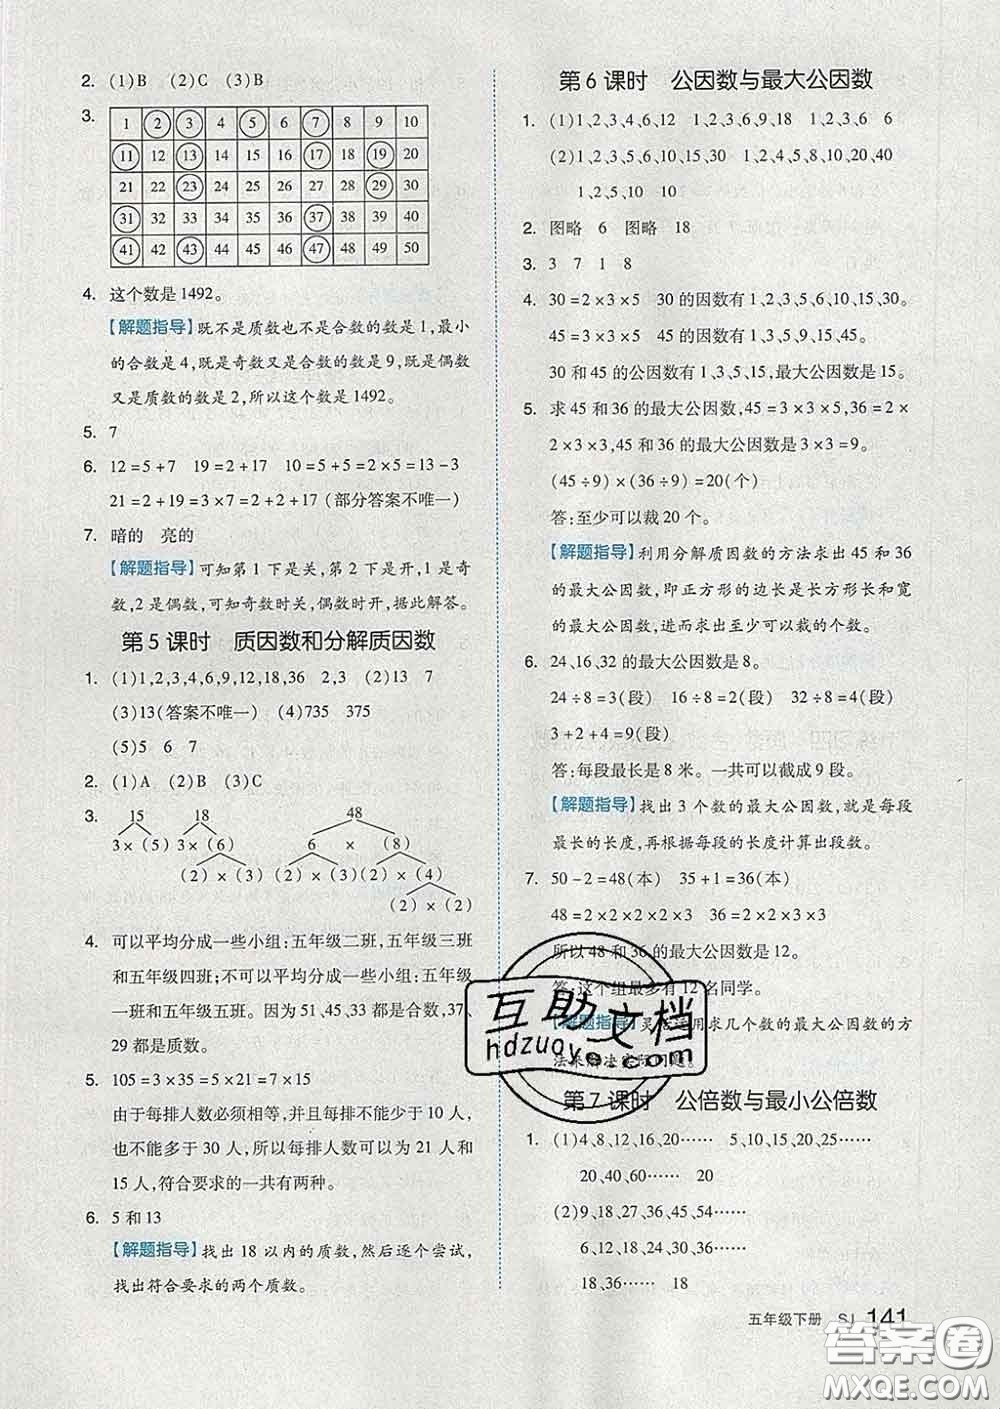 2. (1)B (2)C (3)B
3.
1 2 3 4 5 6 7 8 9 10
11 12 13 14 15 16 17 18 19 20
21 22 23 24 25 26 27 28 29 30
31 32 33 34 35 36 37 38 39 40
41 42 43 44 45 46 47 48 49 50
4. 这个数是1492。
【解题指导】既不是质数也不是合数的数是1,最小
的合数是4,既是奇数又是合数的数是9,既是偶数
又是质数的数是2,所以这个数是1492。
5. 7
6. 12=5+7 19=2+17 10=5+5=2×5=13-3
21=2+19=3×7=2+2+17(部分答案不唯一)
7. 暗的 亮的
【解题指导】可知第1下是关,第2下是开,1是奇
数,2是偶数,可知奇数时关,偶数时开,据此解答。
第5课时 质因数和分解质因数
1. (1)1,2,3,4,6,9,12,18,36 2,3 (2)13 7
(3)13(答案不唯一) (4)735 375
(5)5 6 7
2. (1)A (2)B (3)C
3. 15 18 48
3×(5) 3×(6) 6 × (8)
(2)×(3) (2)×(3) (2)×(4)
(2)×(2)
4. 可以平均分成一些小组:五年级二班,五年级三班
和五年级四班;不可以平均分成一些小组:五年级
一班和五年级五班。因为51、45、33都是合数,37、
29都是质数。
5. 105=3×35=5×21=7×15
由于每排人数必须相等,并且每排人数不能少于
10人,不能多于30人,所以每排人数可以是21人和
15人,符合要求的一共有两种。
6. 5和13
【解题指导】找出18以内的质数,然后逐个尝试,
找出符合要求的两个质数。
第6课时 公因数与最大公因数
1. (1)1、2、3、4、6、12 1、2、3、6、9、18 1、2、3、6 6
(2)1、2、3、5、6、10、15、30 1、2、4、5、8、10、20、40
1、2、5、10 10
2. 图略 6 图略 18
3. 3 7 1 8
4. 30=2×3×5 30的因数有1、2、3、5、6、10、15、30。
45=3×3×5 45的因数有1、3、5、9、15、45。
30和45的公因数有1、3、5、15,最大公因数是15。
5. 求45和36的最大公因数,45=3×3×5,36=2×
2×3×3,45和36的最大公因数是3×3=9。
(45÷9)×(36÷9)=20(个)
答:至少可以裁20个。
【解题指导】利用分解质因数的方法求出45和36
的最大公因数,即正方形的边长是长方形的长和宽
的最大公因数,进而求出至少可以裁的个数。
6. 24、16、32的最大公因数是8。
24÷8=3(段) 16÷8=2(段) 32÷8=4(段)
3+2+4=9(段)
答:每段最长是8米。一共可以截成9段。
【解题指导】找出3个数的最大公因数,就是每段
最长的长度,再根据每段的长度计算出段数。
7. 50-2=48(本) 35+1=36(本)
48=2×2×2×2×3 36=2×2×3×3
所以48和36的最大公因数是12。
答:这个组最多有12名同学。
【解题指导】灵活运用求几个数的最大公因数的方
法来解决实际问题。
互助文档
hdzuoye.com
第7课时 公倍数与最小公倍数
1. (1)4、8、12、16、20…… 5、10、15、20、25……
20、40、60…… 20
(2)9、18、27、36、45、54……
6、12、18、24、30、36……
18、36…… 18
五年级下册 SJ 141
答案圈
MXQE.COM